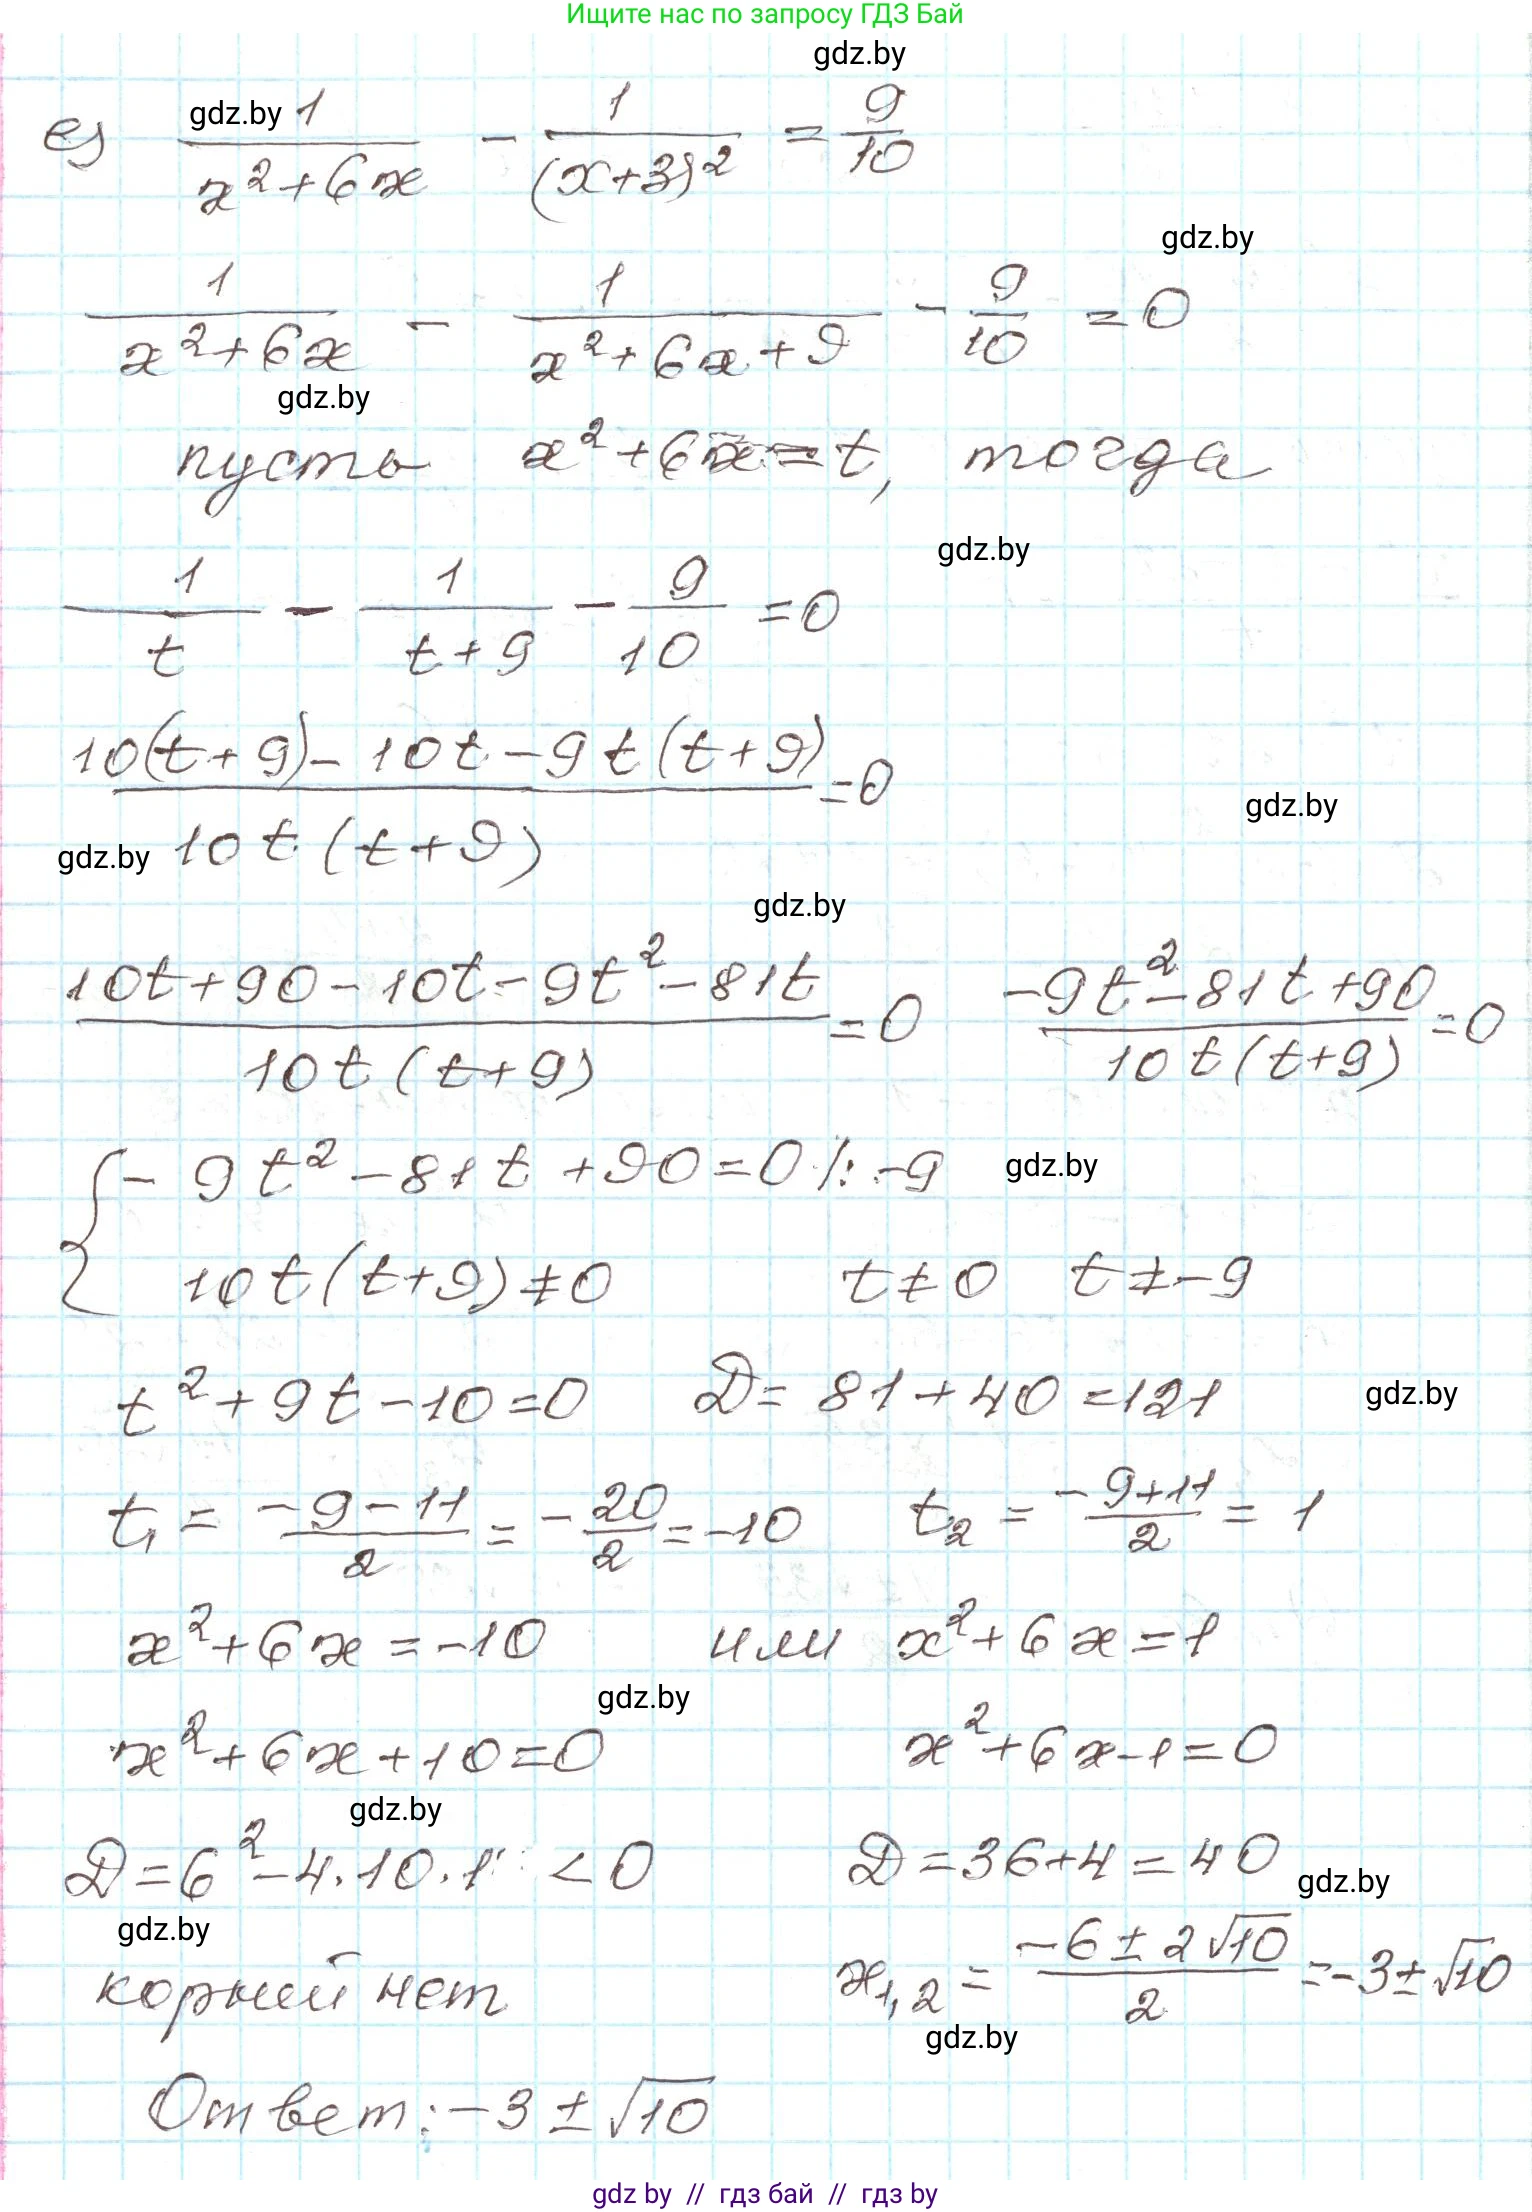 Ищите нас по запросу ГДЗ Бай
gdz.by
е) gdz.by 1/(x²+6x) - 1/(x+3)² = 9/10
gdz.by
1/(x²+6x) - 1/(x²+6x+9) - 9/10 = 0
gdz.by
пусть x²+6x=t, тогда
gdz.by
1/t - 1/(t+9) - 9/10 = 0
(10(t+9)-10t-9t(t+9))/(10t(t+9)) = 0
gdz.by
gdz.by
gdz.by
(10t+90-10t-9t²-81t)/(10t(t+9)) = 0 (-9t²-81t+90)/(10t(t+9)) = 0
{ -9t²-81t+90=0 |: -9 gdz.by
10t(t+9)≠0 t≠0 t≠-9
t²+9t-10=0 D=81+40=121 gdz.by
t₁ = (-9-11)/2 = -20/2 = -10 t₂ = (-9+11)/2 = 1
x²+6x=-10 или x²+6x=1
gdz.by
x²+6x+10=0 x²+6x-1=0
gdz.by
D=6²-4·10·1 <0 D=36+4=40
gdz.by
gdz.by
корний нет x₁,₂ = (-6±2√10)/2 = -3±√10
gdz.by
Ответ: -3±√10
gdz by // гдз бай // гдз by